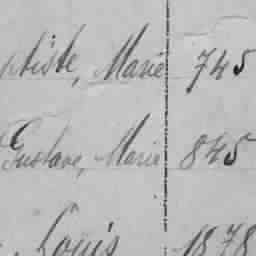 ptiste, Marie 745
Gustave, Marie 845
Louis 1878